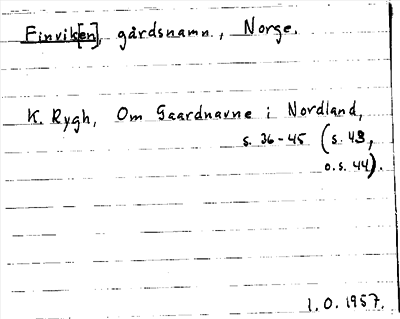 Finvik[en], gårdsnamn., Norge.
K. Rygh, Om Gaardnavne i Nordland,
s. 36-45 (s. 43,
o.s. 44).
I.O. 1957.